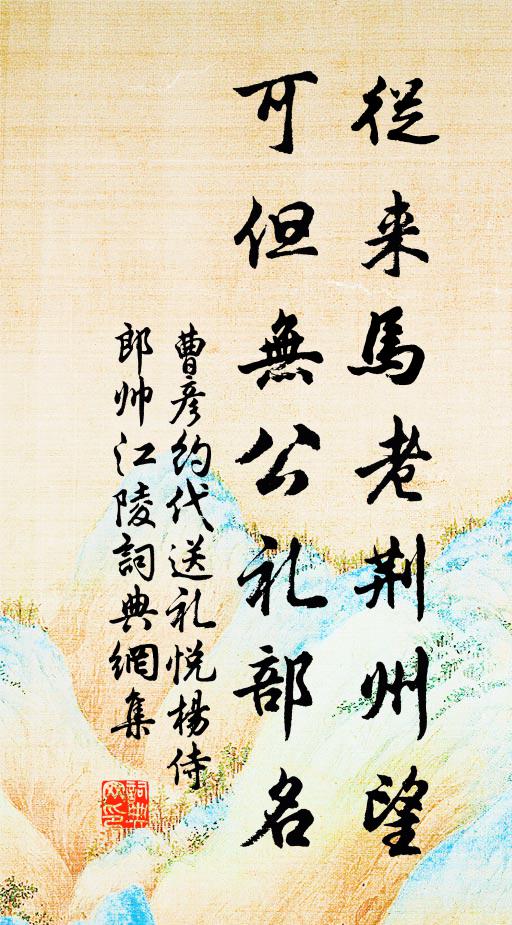 從来馬老荆州望
可但無公礼部名
曹彦約代送礼悦楊侍
郎帅江陵詞典網集
詞典网印